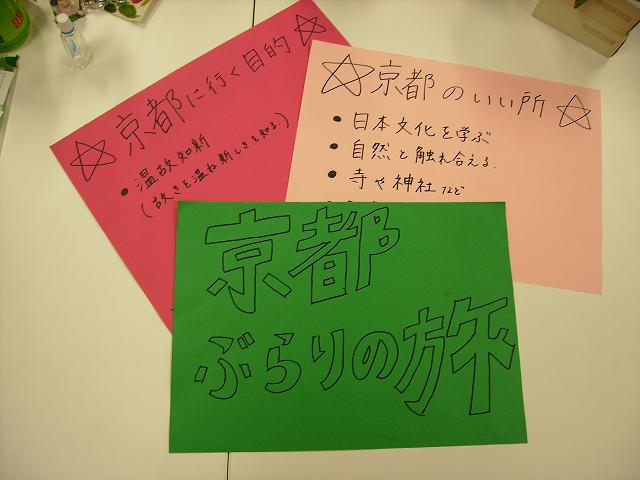 ☆京都に行く目的☆
●温故知新
(故きを温ね新しきを知る。)
☆京都のいい所☆
●日本文化を学ぶ
●自然と触れ合える。
●寺や神社など
京都
ぶらりの旅